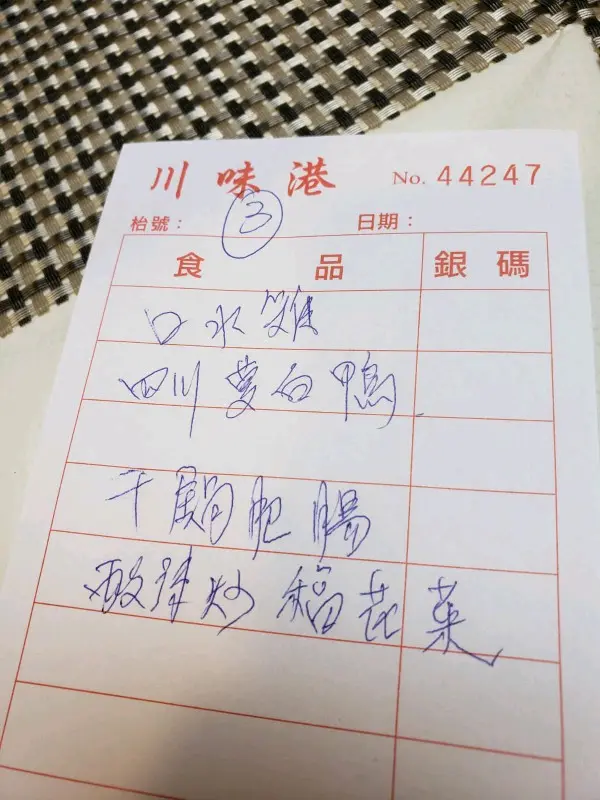 川味港 No. 44247
枱號： ③ 日期：
食品 銀碼
口水雞
四川 鴨
干鍋肥腸
酸辣炒 花菜